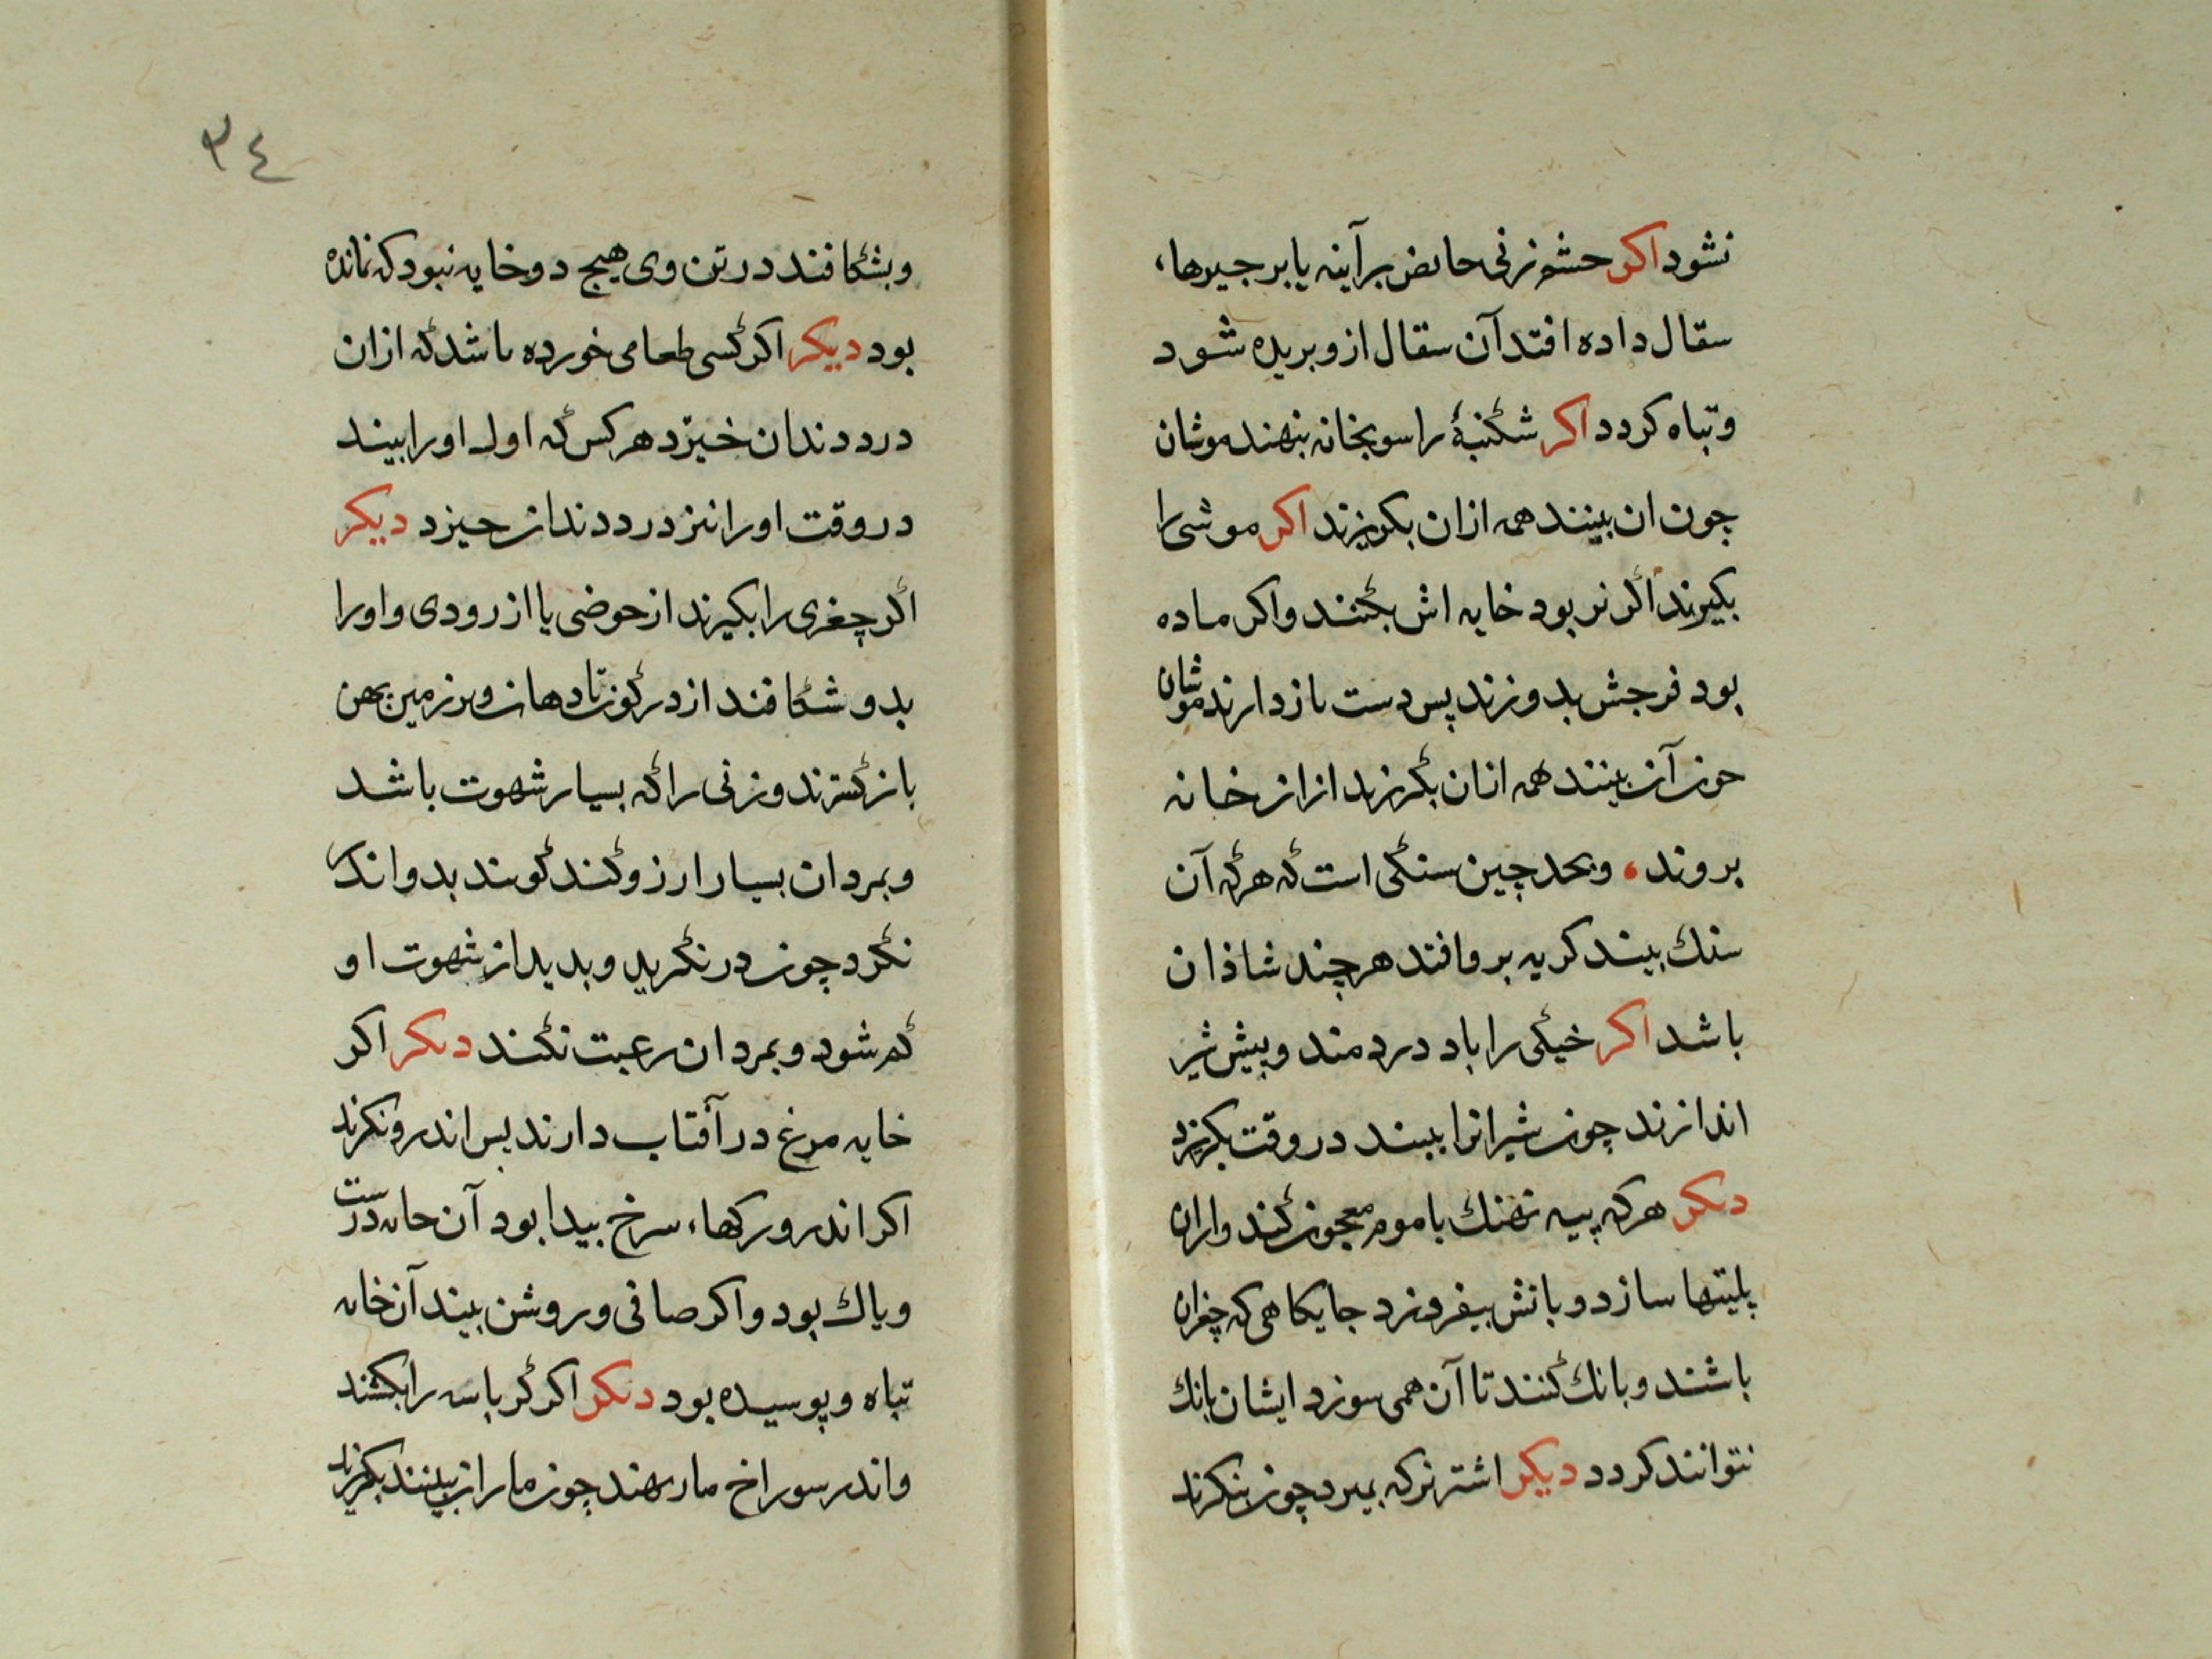 نشود اکر حشم زنی حایض بر آینه یا بر جیرهاء
سقال داده افتد آن سقال ازو بریده شود
و تباه کردد اکر شکنبهٔ را سوی خانه بنهند موشان
چون ان بینند همه ازان بکریزند اکر موشی را
بکیرند اکر نر بود خایه اش بکنند و اکر ماده
بود فرجش بدوزند پس دست بازدارند موشان
چون آن بینند همه ازان بکریزند ازان خانه
بروند، و بحد چین سنکی است که هرکه آن
سنك بیند کریه برو افتد هرچند شاذان
باشد اکر خیکی را باد دردمند و پیش شیر
اندازند چون شیر انرا ببیند در وقت بکریزد
دیکر هرکه پیه نهنك با موم معجون کند وازان
پلیتها سازد و باتش بیفروزد جایکاهی که چغزان
باشند و بانك کنند تا آن همی سوزد ایشان بانك
نتوانند کردد دیکر اشتر نر که بمیرد چون بنکرند
٣٤
و بشکافند در تن وی هیج دو خایه نبود که نمانده
بود دیکر اکر کسی طعامی خورده باشد که ازان
درد دندان خیزد هرکس که اول اورا بیند
در وقت اورا نیز درد دندان خیزد دیکر
اکر چغزی را بکیرند از حوضی یا از رودی و اورا
بدو شکافند از در کون تا دهان و بر زمین بهن
باز کسترند و زنی را که بسیار شهوت باشد
و بمردان بسیار ارزو کند کویند بدو اندر
نکرد چون در نکرید و بدید از شهوت او
کم شود و بمردان رغبت نکند دیکر اکر
خایه مرغ در آفتاب دارند پس اندرو نکرند
اکر اندرو رکهاء سرخ بیدا بود آن خایه درست
و پاك بود و اکر صافی و روشن بیند آن خایه
تباه و پوسیده بود دیکر اکر کرباسه را بکشند
و اندر سوراخ مار نهند چون ماران ببینند بکریزند